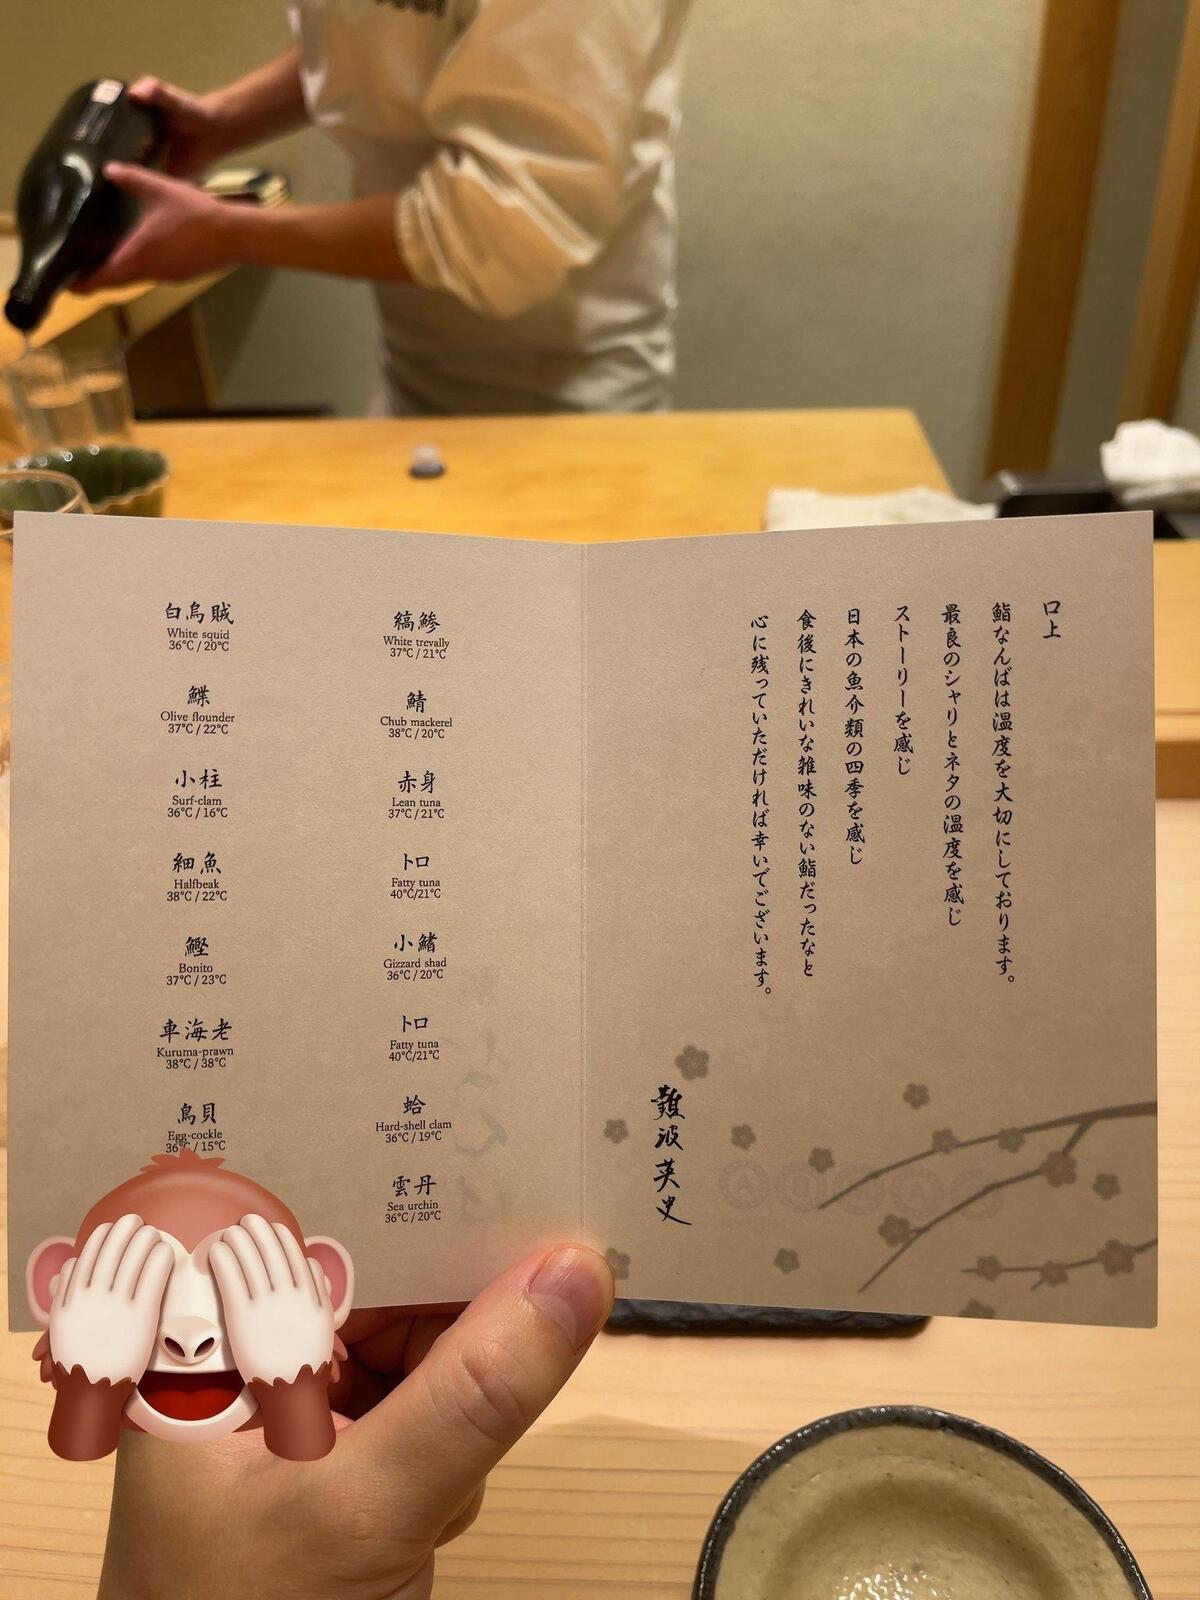 口上
鮨なんばは温度を大切にしております。
最良のシャリとネタの温度を感じ
ストーリーを感じ
日本の魚介類の四季を感じ
食後にきれいな雑味のない鮨だったなと
心に残っていただければ幸いでございます。
難波英史
縞鯵
White trevally
37℃ / 21℃
鯖
Chub mackerel
38℃ / 20℃
赤身
Lean tuna
37℃ / 21℃
トロ
Fatty tuna
40℃/21℃
小鰭
Gizzard shad
36℃ / 20℃
トロ
Fatty tuna
40℃/21℃
蛤
Hard-shell clam
36℃ / 19℃
雲丹
Sea urchin
36℃ / 20℃
白烏賊
White squid
36℃ / 20℃
鰈
Olive flounder
37℃ / 22℃
小柱
Surf-clam
36℃ / 16℃
細魚
Halfbeak
38℃ / 22℃
鰹
Bonito
37℃ / 23℃
車海老
Kuruma-prawn
38℃ / 38℃
鳥貝
Egg-cockle
36℃ / 15℃